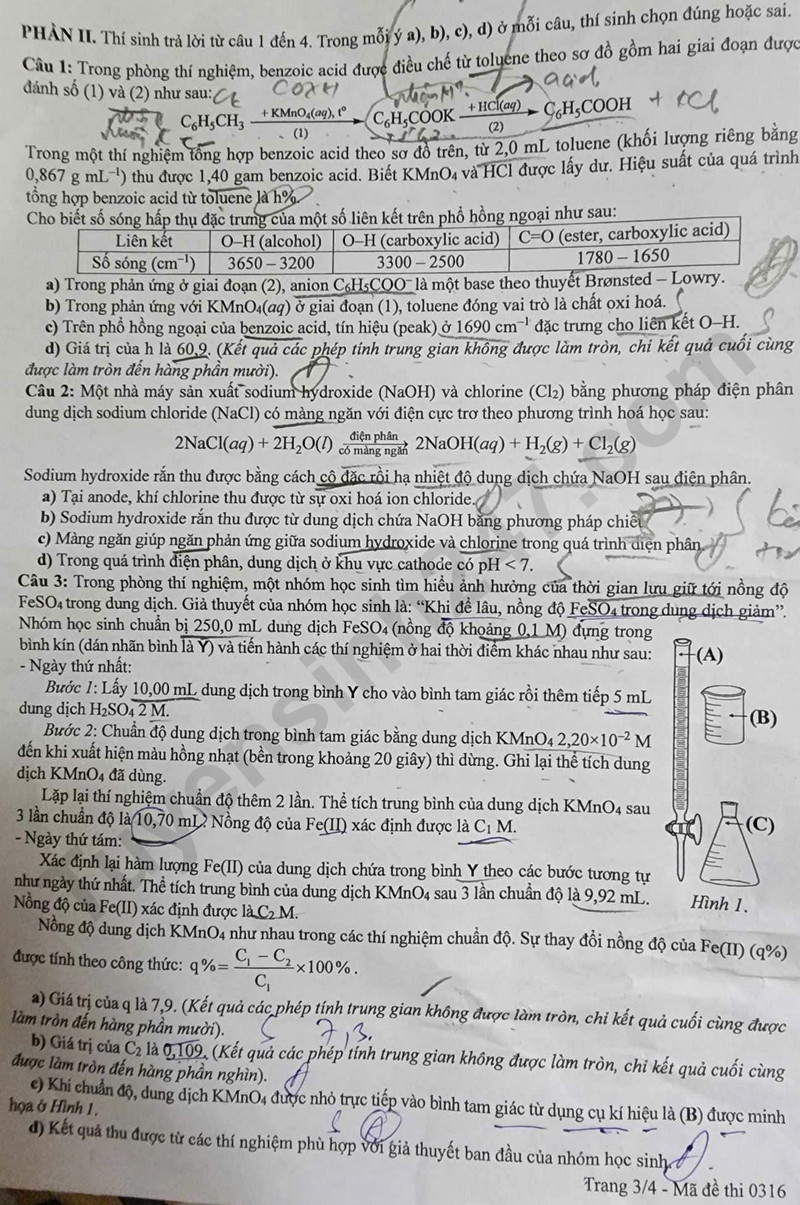 PHẦN II. Thí sinh trả lời từ câu 1 đến 4. Trong mỗi ý a), b), c), d) ở mỗi câu, thí sinh chọn đúng hoặc sai.
Câu 1: Trong phòng thí nghiệm, benzoic acid được điều chế từ toluene theo sơ đồ gồm hai giai đoạn được
đánh số (1) và (2) như sau:
acid
C₆H₅CH₃ + KMnO₄(aq), t° (1) → C₆H₅COOK + HCl(aq) (2) → C₆H₅COOH
Trong một thí nghiệm tổng hợp benzoic acid theo sơ đồ trên, từ 2,0 mL toluene (khối lượng riêng bằng
0,867 g mL⁻¹) thu được 1,40 gam benzoic acid. Biết KMnO₄ và HCl được lấy dư. Hiệu suất của quá trình
tổng hợp benzoic acid từ toluene là h%.
Cho biết số sóng hấp thụ đặc trưng của một số liên kết trên phổ hồng ngoại như sau:
Liên kết O–H (alcohol) O–H (carboxylic acid) C=O (ester, carboxylic acid)
Số sóng (cm⁻¹) 3650 – 3200 3300 – 2500 1780 – 1650
a) Trong phản ứng ở giai đoạn (2), anion C₆H₅COO⁻ là một base theo thuyết Brønsted – Lowry.
b) Trong phản ứng với KMnO₄(aq) ở giai đoạn (1), toluene đóng vai trò là chất oxi hoá.
c) Trên phổ hồng ngoại của benzoic acid, tín hiệu (peak) ở 1690 cm⁻¹ đặc trưng cho liên kết O–H.
d) Giá trị của h là 60,9. (Kết quả các phép tính trung gian không được làm tròn, chỉ kết quả cuối cùng
được làm tròn đến hàng phần mười).
Câu 2: Một nhà máy sản xuất sodium hydroxide (NaOH) và chlorine (Cl₂) bằng phương pháp điện phân
dung dịch sodium chloride (NaCl) có màng ngăn với điện cực trơ theo phương trình hoá học sau:
2NaCl(aq) + 2H₂O(l) điện phân có màng ngăn → 2NaOH(aq) + H₂(g) + Cl₂(g)
Sodium hydroxide rắn thu được bằng cách cô đặc rồi hạ nhiệt độ dung dịch chứa NaOH sau điện phân.
a) Tại anode, khí chlorine thu được từ sự oxi hoá ion chloride.
b) Sodium hydroxide rắn thu được từ dung dịch chứa NaOH bằng phương pháp chiết.
c) Màng ngăn giúp ngăn phản ứng giữa sodium hydroxide và chlorine trong quá trình điện phân.
d) Trong quá trình điện phân, dung dịch ở khu vực cathode có pH < 7.
Câu 3: Trong phòng thí nghiệm, một nhóm học sinh tìm hiểu ảnh hưởng của thời gian lưu giữ tới nồng độ
FeSO₄ trong dung dịch. Giả thuyết của nhóm học sinh là: “Khi để lâu, nồng độ FeSO₄ trong dung dịch giảm”.
Nhóm học sinh chuẩn bị 250,0 mL dung dịch FeSO₄ (nồng độ khoảng 0,1 M) đựng trong
bình kín (dán nhãn bình là Y) và tiến hành các thí nghiệm ở hai thời điểm khác nhau như sau:
- Ngày thứ nhất:
Bước 1: Lấy 10,00 mL dung dịch trong bình Y cho vào bình tam giác rồi thêm tiếp 5 mL
dung dịch H₂SO₄ 2 M.
Bước 2: Chuẩn độ dung dịch trong bình tam giác bằng dung dịch KMnO₄ 2,20×10⁻² M
đến khi xuất hiện màu hồng nhạt (bền trong khoảng 20 giây) thì dừng. Ghi lại thể tích dung
dịch KMnO₄ đã dùng.
Lặp lại thí nghiệm chuẩn độ thêm 2 lần. Thể tích trung bình của dung dịch KMnO₄ sau
3 lần chuẩn độ là 10,70 mL. Nồng độ của Fe(II) xác định được là C₁ M.
- Ngày thứ tám:
Xác định lại hàm lượng Fe(II) của dung dịch chứa trong bình Y theo các bước tương tự
như ngày thứ nhất. Thể tích trung bình của dung dịch KMnO₄ sau 3 lần chuẩn độ là 9,92 mL.
Nồng độ của Fe(II) xác định được là C₂ M.
(A)
(B)
(C)
Hình 1.
Nồng độ dung dịch KMnO₄ như nhau trong các thí nghiệm chuẩn độ. Sự thay đổi nồng độ của Fe(II) (q%)
được tính theo công thức: q% = (C₁ − C₂)/C₁ ×100%.
a) Giá trị của q là 7,9. (Kết quả các phép tính trung gian không được làm tròn, chỉ kết quả cuối cùng được
làm tròn đến hàng phần mười).
7,3.
b) Giá trị của C₂ là 0,109. (Kết quả các phép tính trung gian không được làm tròn, chỉ kết quả cuối cùng
được làm tròn đến hàng phần nghìn).
c) Khi chuẩn độ, dung dịch KMnO₄ được nhỏ trực tiếp vào bình tam giác từ dụng cụ kí hiệu là (B) được minh
họa ở Hình 1.
d) Kết quả thu được từ các thí nghiệm phù hợp với giả thuyết ban đầu của nhóm học sinh.
Trang 3/4 - Mã đề thi 0316